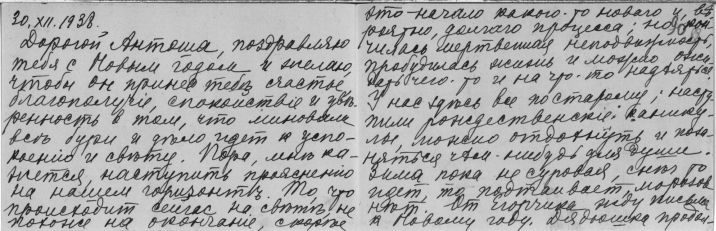 30.XII.1938.
Дорогой Антоша, поздравляю
тебя с Новым годом и желаю
чтобы он принес тебѣ счастье
благополучіе, спокойствіе и увѣ-
ренность в том, что миновали
всѣ бури и дѣло идет к успо-
коенію и свѣту. Пора, мнѣ ка-
жется, наступить проясненію
на нашем горизонтѣ. То, что
происходит сейчас на свѣтѣ не
похоже на окончаніе, скорѣе
это начало какого-то новаго и, вѣ-
роятно, долгаго процесса; но кон-
чилась мертвенная неподвижность,
пробудилась жизнь и можно ожи-
дать чего-то и на что-то надѣяться.
У нас здѣсь все по старому; насту-
пили рождественскіе каникулы,
можно отдохнуть и
заняться чѣм-нибудь для души.
Зима пока не суровая, снѣг то
идет, то подтаивает, морозов
нѣт. От Игорчика жду письма
к Новому году. Дядюшка